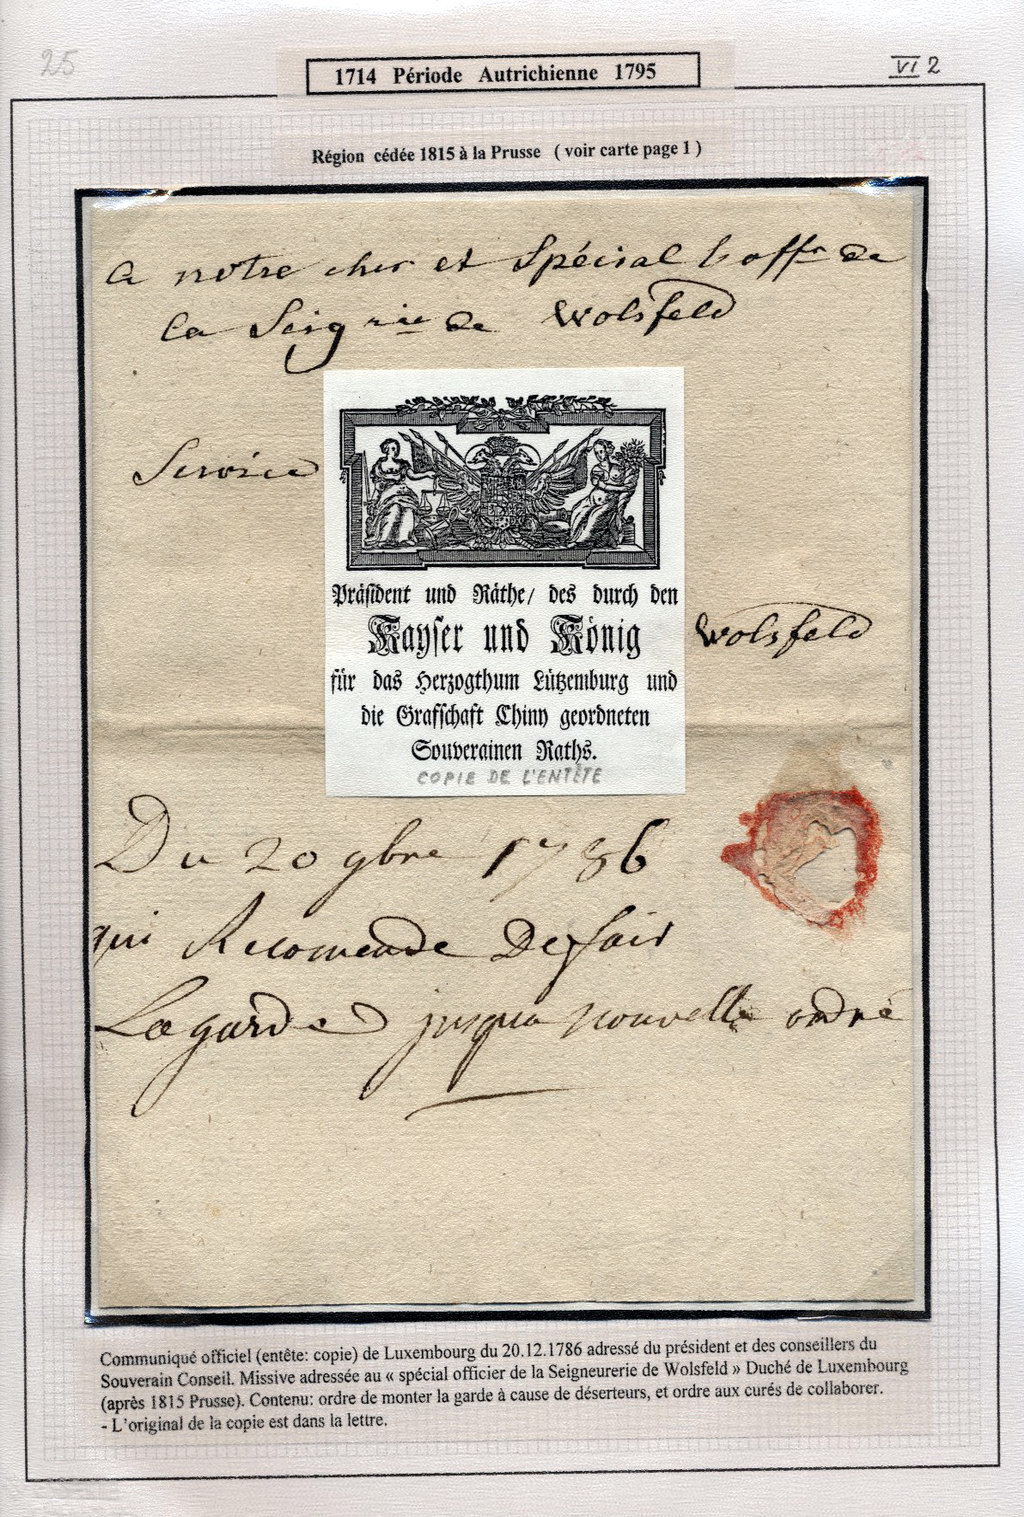 25
1714 Période Autrichienne 1795
VI 2
Région cédée 1815 à la Prusse ( voir carte page 1 )
a notre cher et Spécial l'offr de
la Seigrie de Wolsfeld
Service
Präsident und Räthe/ des durch den
Kayser und König
für das Herzogthum Lützemburg und
die Grafschaft Chiny geordneten
Souverainen Raths.
COPIE DE L'ENTÊTE
Wolsfeld
Du 20 gbre 1786
qui Recomende De fair
La garde jusqua nouvelle ordre
Communiqué officiel (entête: copie) de Luxembourg du 20.12.1786 adressé du président et des conseillers du
Souverain Conseil. Missive adressée au « spécial officier de la Seigneurerie de Wolsfeld » Duché de Luxembourg
(après 1815 Prusse). Contenu: ordre de monter la garde à cause de déserteurs, et ordre aux curés de collaborer.
- L'original de la copie est dans la lettre.